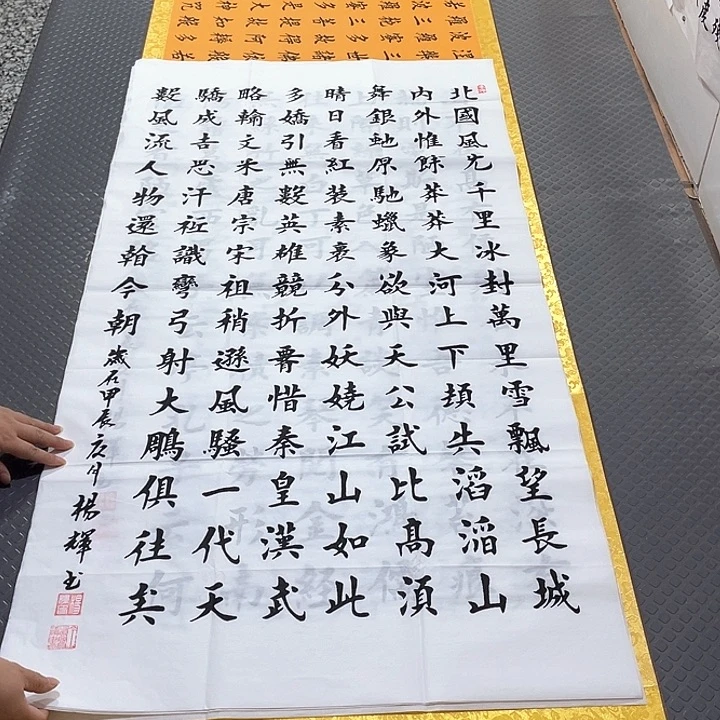 北國風光千里冰封萬里雪飄望長城
内外惟餘莽莽大河上下頓失滔滔山
舞銀蛇原馳蠟象欲與天公試比高須
晴日看紅裝素裹分外妖嬈江山如此
多嬌引無數英雄競折腰惜秦皇漢武
略輸文采唐宗宋祖稍遜風騷一代天
驕成吉思汗衹識彎弓射大鵰俱往矣
數風流人物還看今朝
歲在甲辰夏月楊輝書